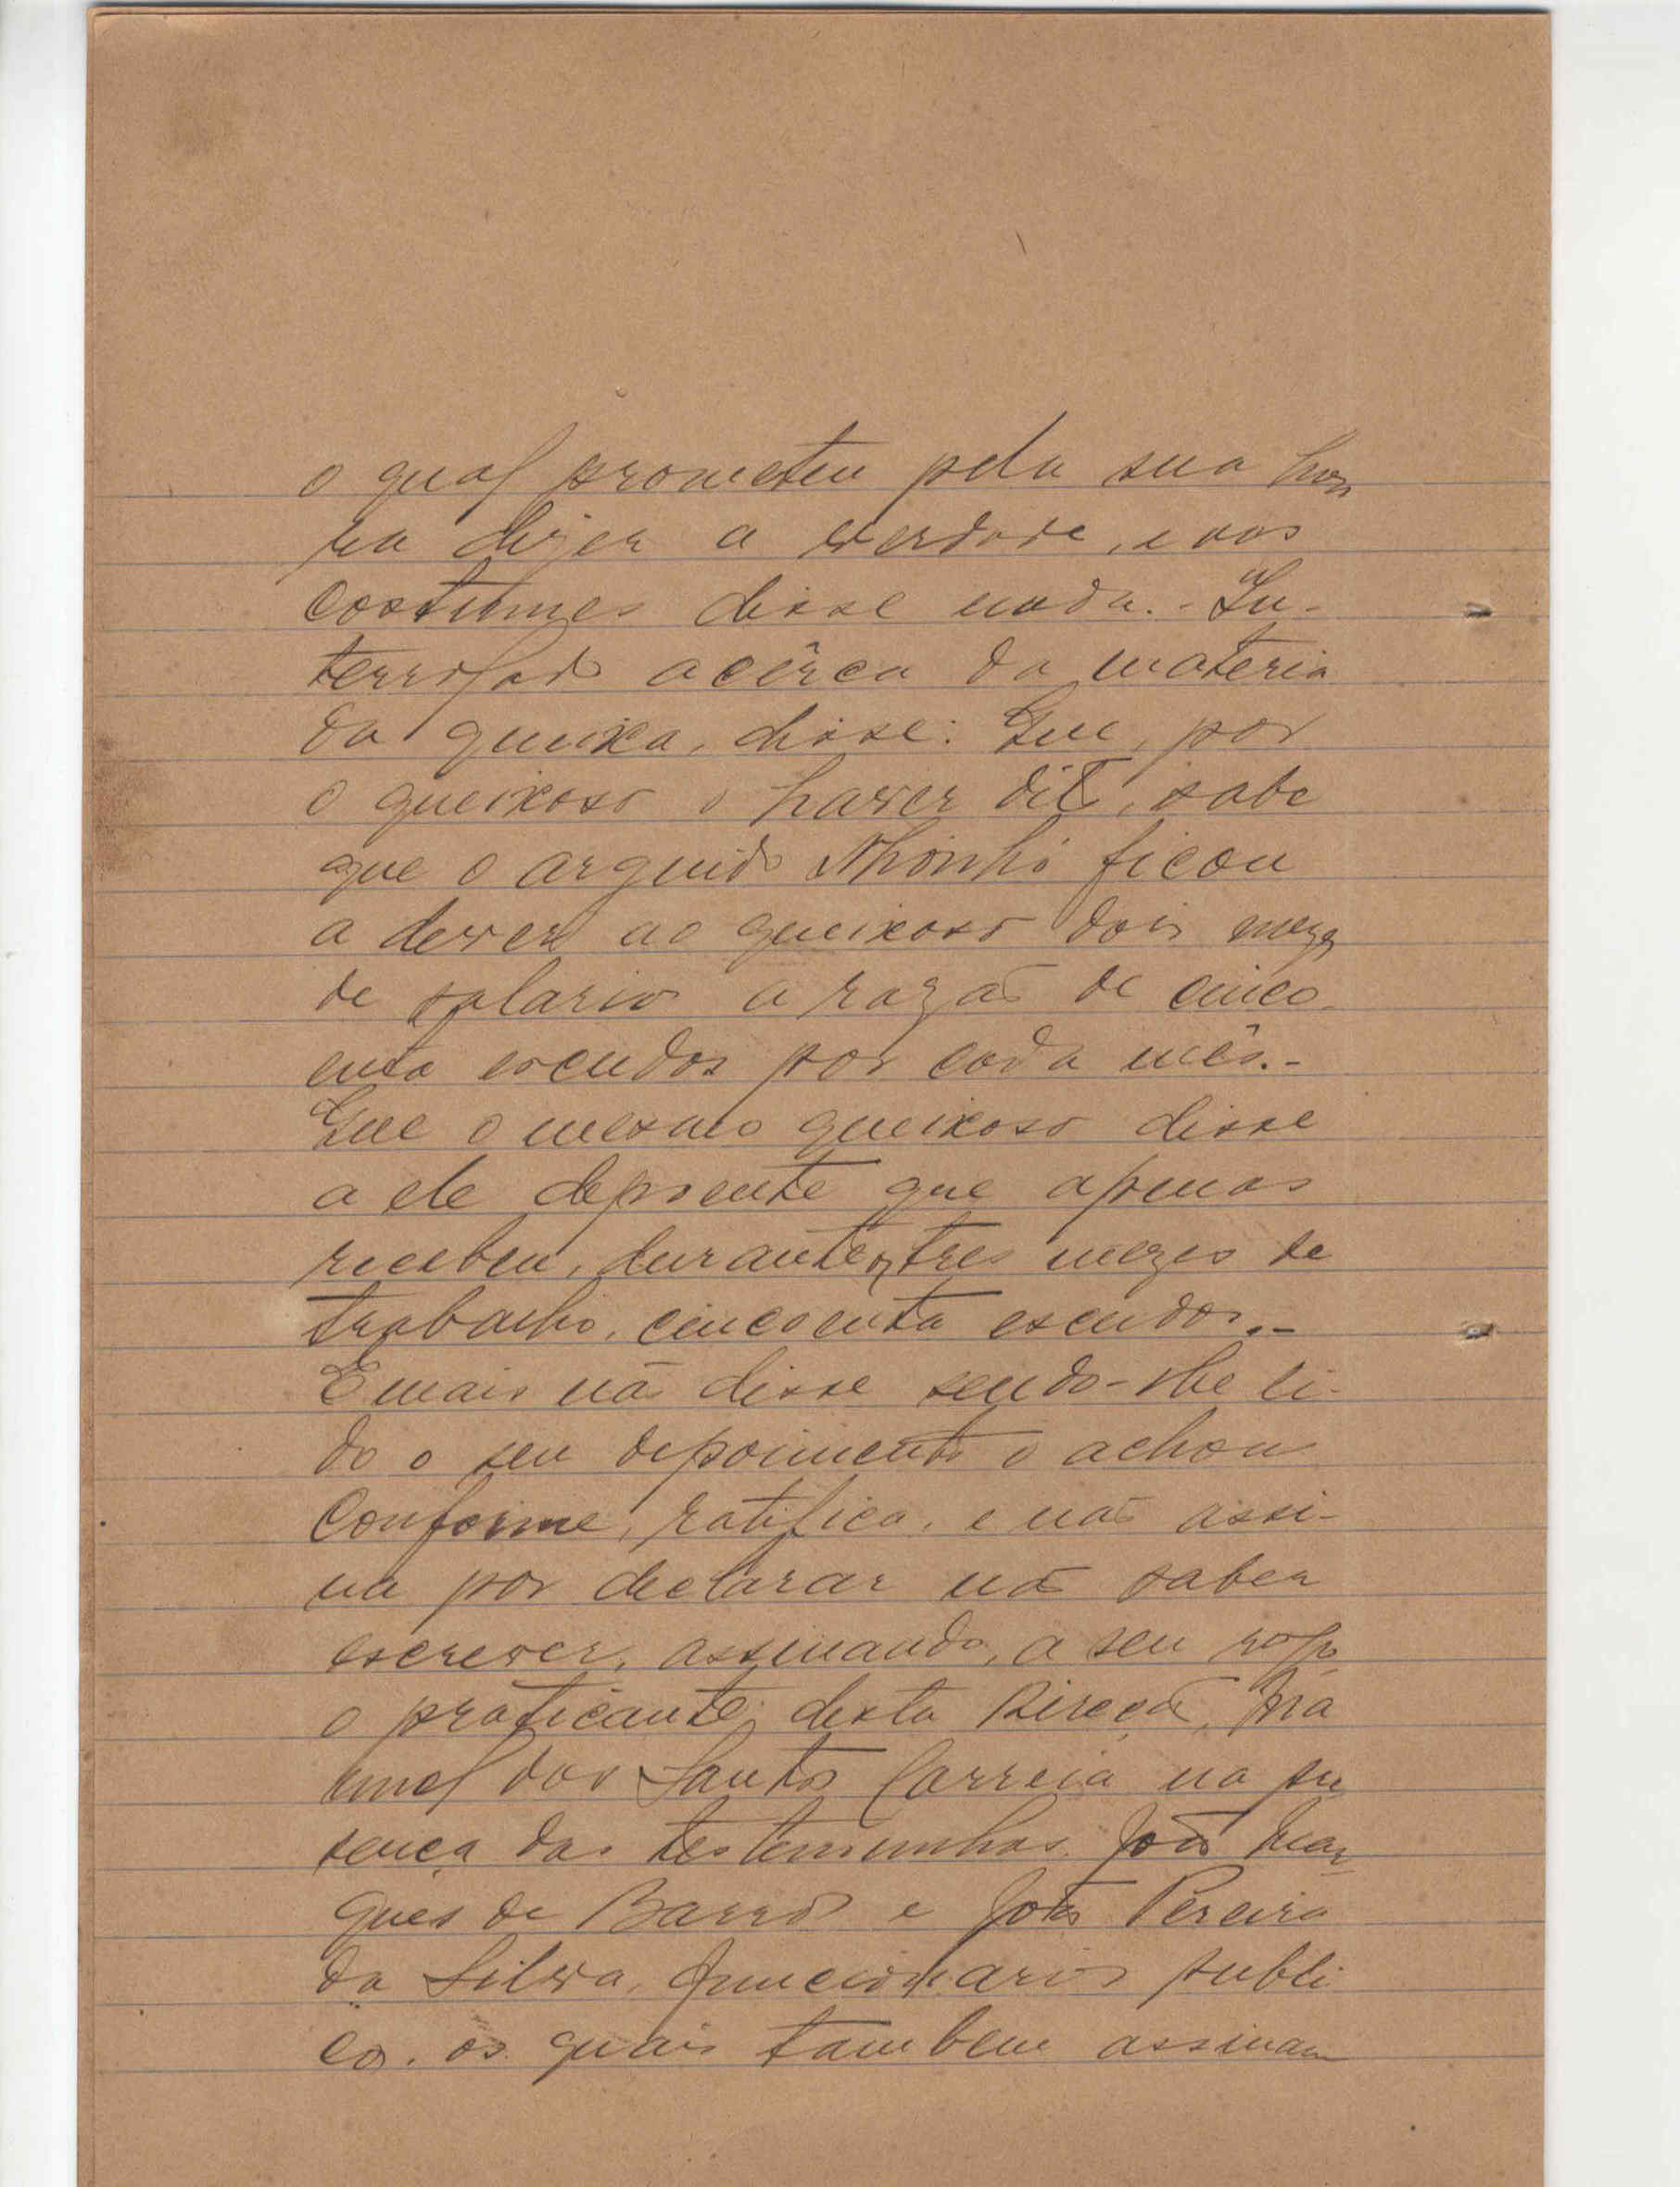 o qual prometeu pela sua hon
ra dizer a verdade, e aos
costumes disse nada. - In-
terrogado acêrca da materia
da queixa, disse: Que, por
o queixoso o haver dito, sabe
que o arguido Nhonhô ficou
a dever ao queixoso dois mezes
de salario a razão de cinco
enta escudos por cada mês. -
Que o mesmo queixoso disse
a ele depoente que apenas
recebeu, durante os tres mezes de
trabalho, cincoenta escudos. -
E mais não disse sendo-lhe li-
do o seu depoimento o achou
conforme, ratifica, e não assi-
na por declarar não saber
escrever, assinando, a seu rogo
o praticante desta Direcção, Ma
nuel dos Santos Correia na pre
sença das testemunhas João Mar
ques de Barros e João Pereira
da Silva, funcionarios publi
cos. os quais tambem assinam